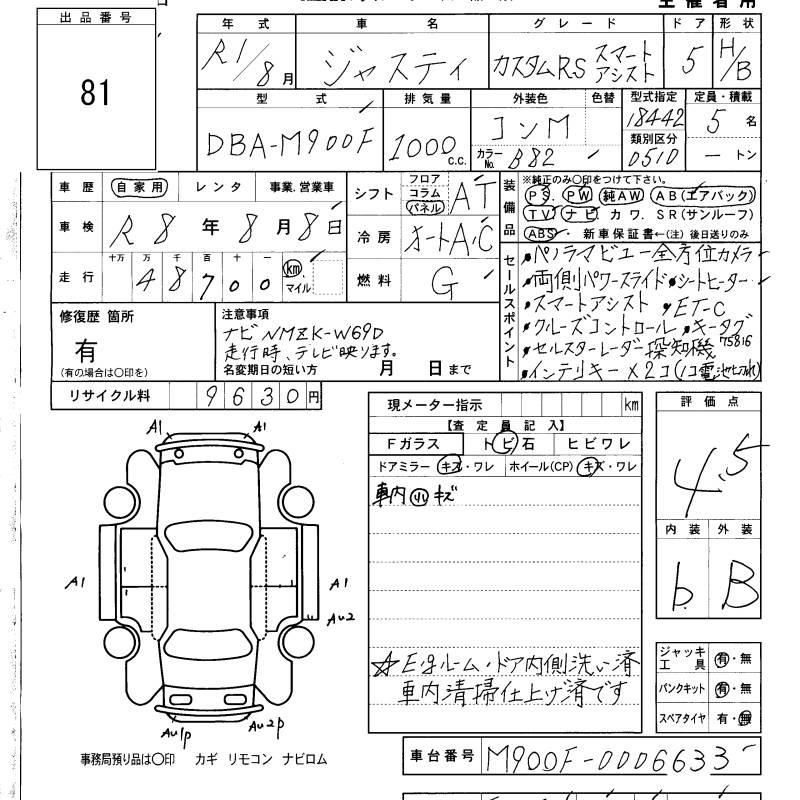 出品番号
81
年式 車名 グレード ドア 形状
R1/8月 ジャスティ カスタムRS スマートアシスト 5 H/B
型式 排気量 外装色 色替 型式指定 定員・積載
DBA-M900F 1000 c.c. コンM 18442 5名
カラーNo. B82 類別区分 0510 ートン
車歴 自家用 レンタ 事業、営業車
車検 R8年8月8日
走行 十万 万 千 百 十 一 km マイル
48700
シフト フロア コラム パネル AT
冷房 オートA,C
燃料 G
装備品 ※純正のみ○印をつけて下さい。
PS. PW 純AW AB(エアバッグ)
TV ナビ カワ. SR(サンルーフ)
ABS 新車保証書←(注)後日送りのみ
セールスポイント
パノラマビュー全方位カメラ
両側パワースライド シートヒーター
スマートアシスト ET-C
クルーズコントロール キータグ
セルスターレーダー探知機 75816
インテリキー×2コ(1コ電池切れ)
修復歴 箇所
有
(有の場合は○印を)
注意事項
ナビNMZK-W69D
走行時、テレビ映ります。
名変期日の短い方 月 日まで
リサイクル料 9630円
A1 A1
A1 A1
AU2
AU1P AU2P
事務局預り品は○印 カギ リモコン ナビロム
現メーター指示 km
【査定員記入】
Fガラス トビ石 ヒビワレ
ドアミラー キズ・ワレ ホイール(CP) キズ・ワレ
車内 小 キズ
☆Egルーム・ドア内側洗い済
車内清掃仕上げ済です
評価点
4.5
内装 外装
b B
ジャッキ工具 有・無
パンクキット 有・無
スペアタイヤ 有・無
車台番号 M900F-0006633